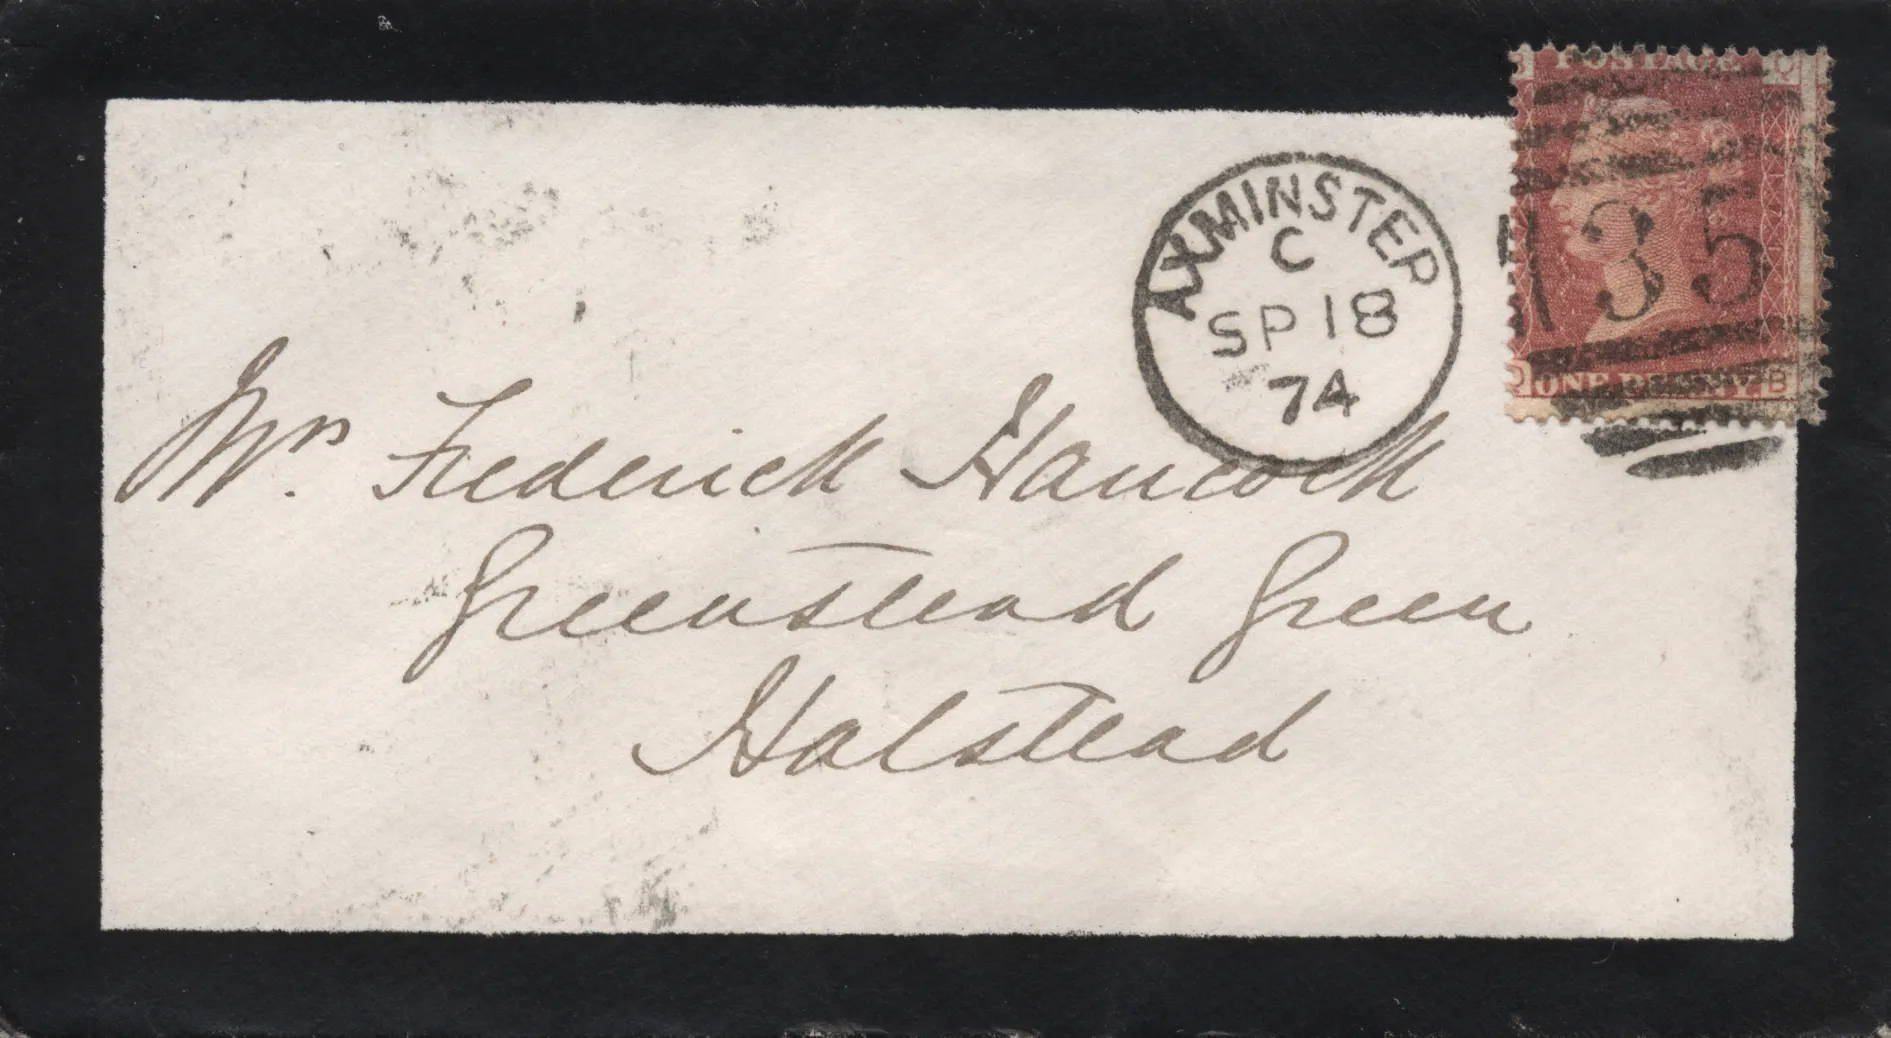 POSTAGE
AXMINSTER
C
SP 18
74
35
ONE PENNY
Q B
Mrs. Frederick Hancock
Greenstead Green
Halstead